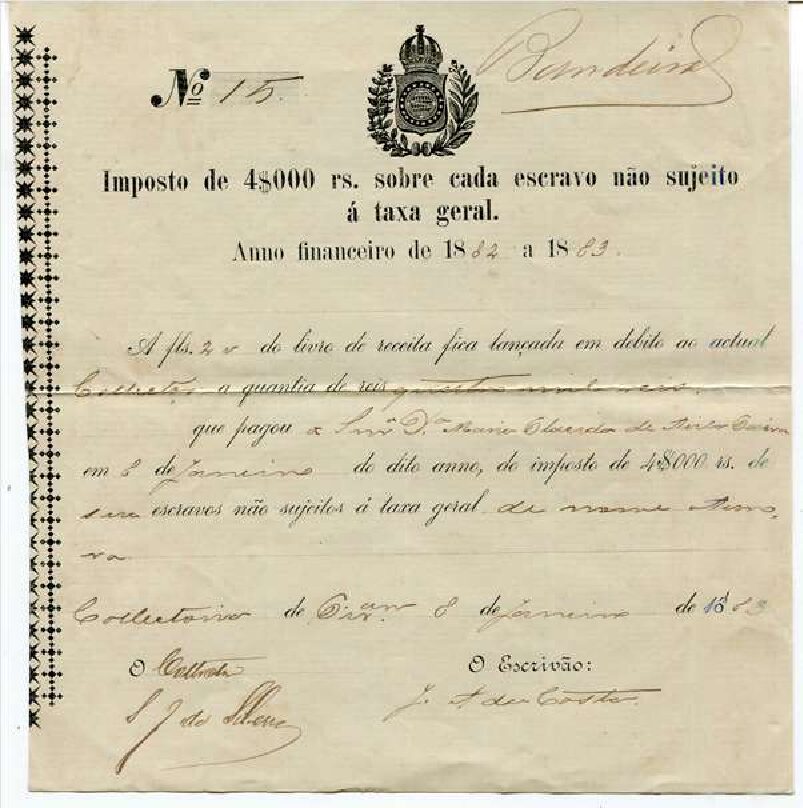 Nº 15.
Bandeira
Imposto de 4$000 rs. sobre cada escravo não sujeito
á taxa geral.
Anno financeiro de 1882 a 1883.
A fls. 2 v do livro de receita fica lançada em debito ao actual
Collector a quantia de reis quatro mil reis.
que pagou a Snrª Dª Maria de
em 8 de Janeiro do dito anno, do imposto de 4$000 rs. de
seu escravos não sujeitos á taxa geral de nome
ra
Collectoria de 8 de Janeiro de 1883
O Collector O Escrivão:
S J da J. A da Costa